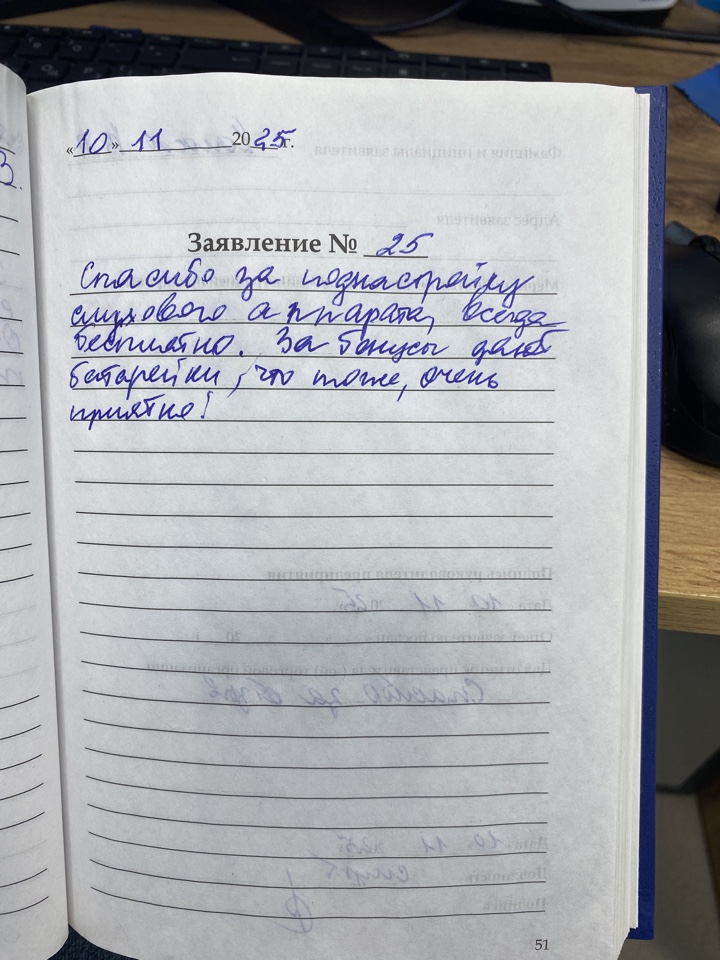 «10» 11 2025г.
Заявление № 25
Спасибо за поднастройку
слухового аппарата, всегда
бесплатно. За бонусы дают
батарейки, что тоже, очень
приятно!
51